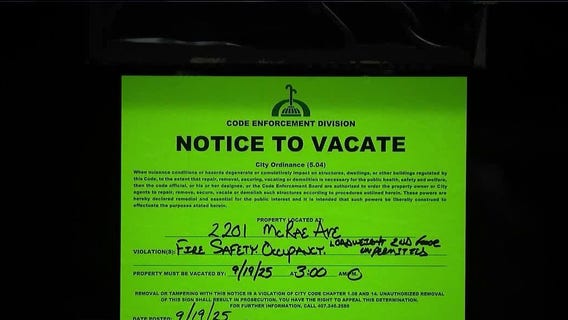 CODE ENFORCEMENT DIVISION
NOTICE TO VACATE
City Ordinance (5.04)
When nuisance conditions or hazards degenerate or cumulatively impact on structures, dwellings, or other buildings regulated
by this Code, to the extent that repair, removal, securing, vacating or demolition is necessary for the public health, safety and welfare,
then the code official, or his or her designee, or the Code Enforcement Board are authorized to order the property owner or City
agents to repair, remove, secure, vacate or demolish such structures according to procedures outlined herein. These powers are
hereby declared remedial and essential for the public interest and it is intended that such powers be liberally construed to
effectuate the purposes stated herein.
PROPERTY LOCATED AT:
2201 McRae Ave
VIOLATION(S): Fire Safety, Occupancy, 2nd Floor
unpermitted
PROPERTY MUST BE VACATED BY: 9/19/25 AT 3:00 AM/PM.
REMOVAL OR TAMPERING WITH THIS NOTICE IS A VIOLATION OF CITY CODE CHAPTER 1.08 AND 14. UNAUTHORIZED REMOVAL
OF THIS SIGN SHALL RESULT IN PROSECUTION. YOU HAVE THE RIGHT TO APPEAL THIS DETERMINATION.
FOR FURTHER INFORMATION, CALL 407.246.2686
DATE POSTED: 9/19/25